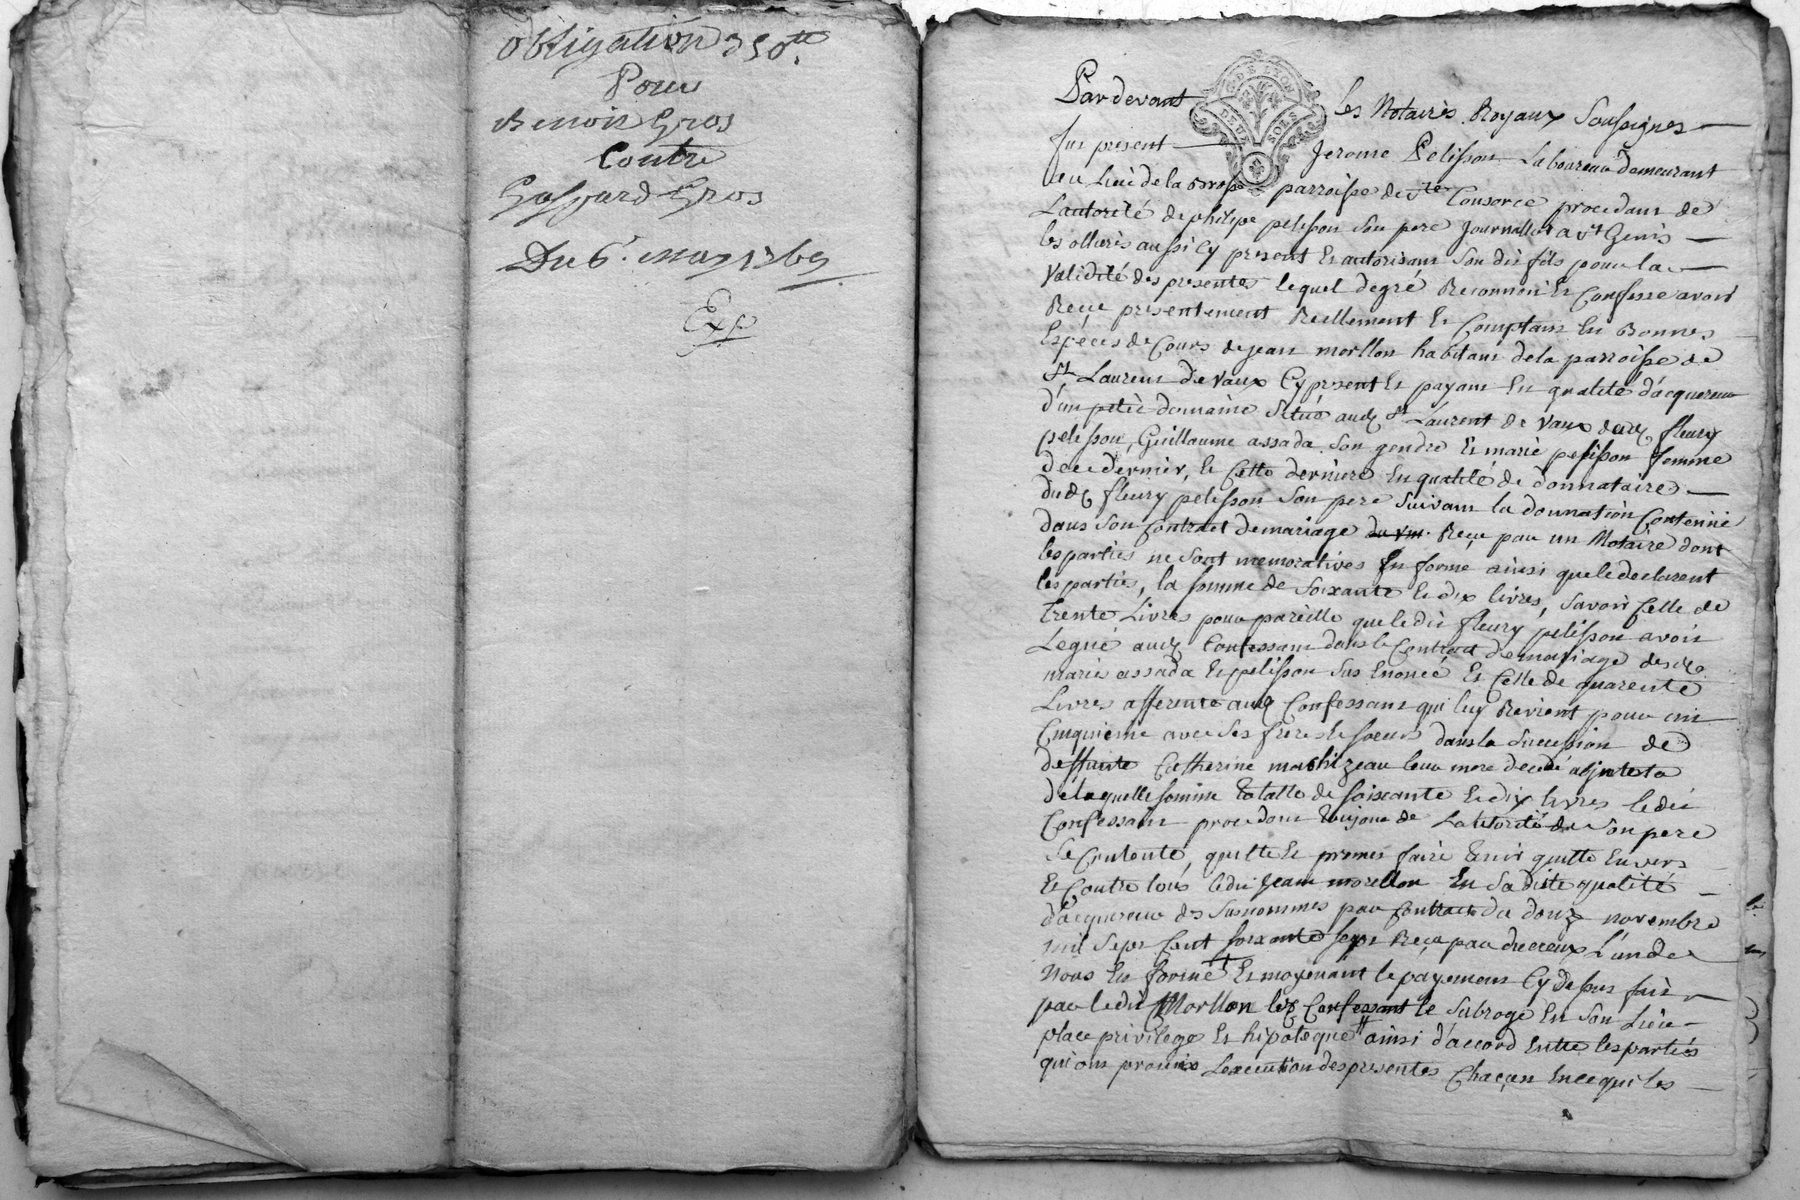 obligation 350.tt
Pour
Benoit Gros
Contre
Gaspard Gros
Du 6. may 1769
Exp
G. DE LYON
DEUX SOLS
Pardevant Les Notaires Royaux Soussignes
fut present Jerome Pelisson Laboureur demeurant
au Lieu de la Brosse parroisse de Ste Consorce procedant de
Lautorité de philipe pelisson son pere Journallier a St Genis
les ollieres aussi cy present et autorisant son dit fils pour la
validité des presentes lequel degré Reconnoit et Confesse avoir
Reçu presentement Reellement et Comptant en Bonnes
Espéces de Cours de jean morllon habitant de la parroisse de
St Laurent de vaux Cy present et payant en qualité d'acquereur
d'un petit domaine situé audt St Laurent de vaux dudt fleury
pelisson, Guillaume assada son gendre et marie pelisson femme
de ce dernier, et Cette derniere en qualité de donnataire
dudt fleury pelisson son pere suivant la donnation Contenüe
dans son Contract de mariage Reçu par un Notaire dont
les parties ne sont memoratives en forme ainsi que le declarent
les parties, la somme de soixante et dix livres, savoir Celle de
trente Livres pour pareille que ledit fleury pelisson avoit
Legué audt Confessant dans le Contract de mariage desdts
mariés assada et pelisson sus Enoncé et Celle de quarente
Livres afferente audt Confessant qui luy Revient pour un
Cinquieme avec ses freres et soeurs dans la succession de
deffunte Catherine mathizeau leur mere decedé abjntesta
de laquelle somme totalle de soixante et dix livres ledit
Confessant procedant toujour de Lautorité de son pere
se Contente, quitte et promet faire tenir quitte envers
et Contre tous ledit jean morellon en sa dite qualité
d'acquereur des susnommes par Contract du douze novembre
mil sept Cent soixante sept Reçu par ducreux L'un de
Nous en forme et moyenant le payement Cy dessus fait
par ledit Morllon ledt Confessant le subroge en son Lieu
place privilege et hipoteque ainsi d'accord entre les parties
qui ont promis L'execution des presentes Chaçun en ce qui les